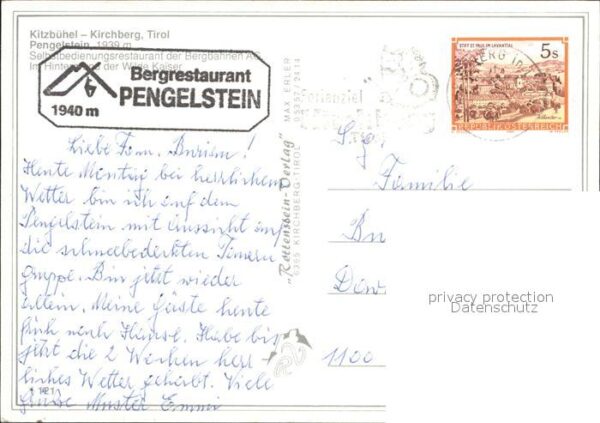 Kitzbühel – Kirchberg, Tirol
Pengelstein, 1939 m
Selbstbedienungsrestaurant der Bergbahnen AG
Im Hintergrund der Wilde Kaiser
Bergrestaurant
PENGELSTEIN
1940 m
Liebe Fam. Burian!
Heute Montag bei herrlichem
Wetter bin ich auf dem
Pengelstein mit Aussicht auf
die schneebedeckten Tauern
gruppe. Bin jetzt wieder
allein. Meine Gäste heute
früh nach Hause. Habe bis
jetzt die 2 Wochen herr
liches Wetter gehabt. Viele
Grüsse Muster Emmi
"Rottenstein-Verlag"
6365 KIRCHBERG-TIROL
MAX ERLER
2414
Ferienziel
STIFT ST. PAUL IM LAVANTTAL
5s
REPUBLIK ÖSTERREICH
S.g.
Familie
Bu
1100
privacy protection
Datenschutz